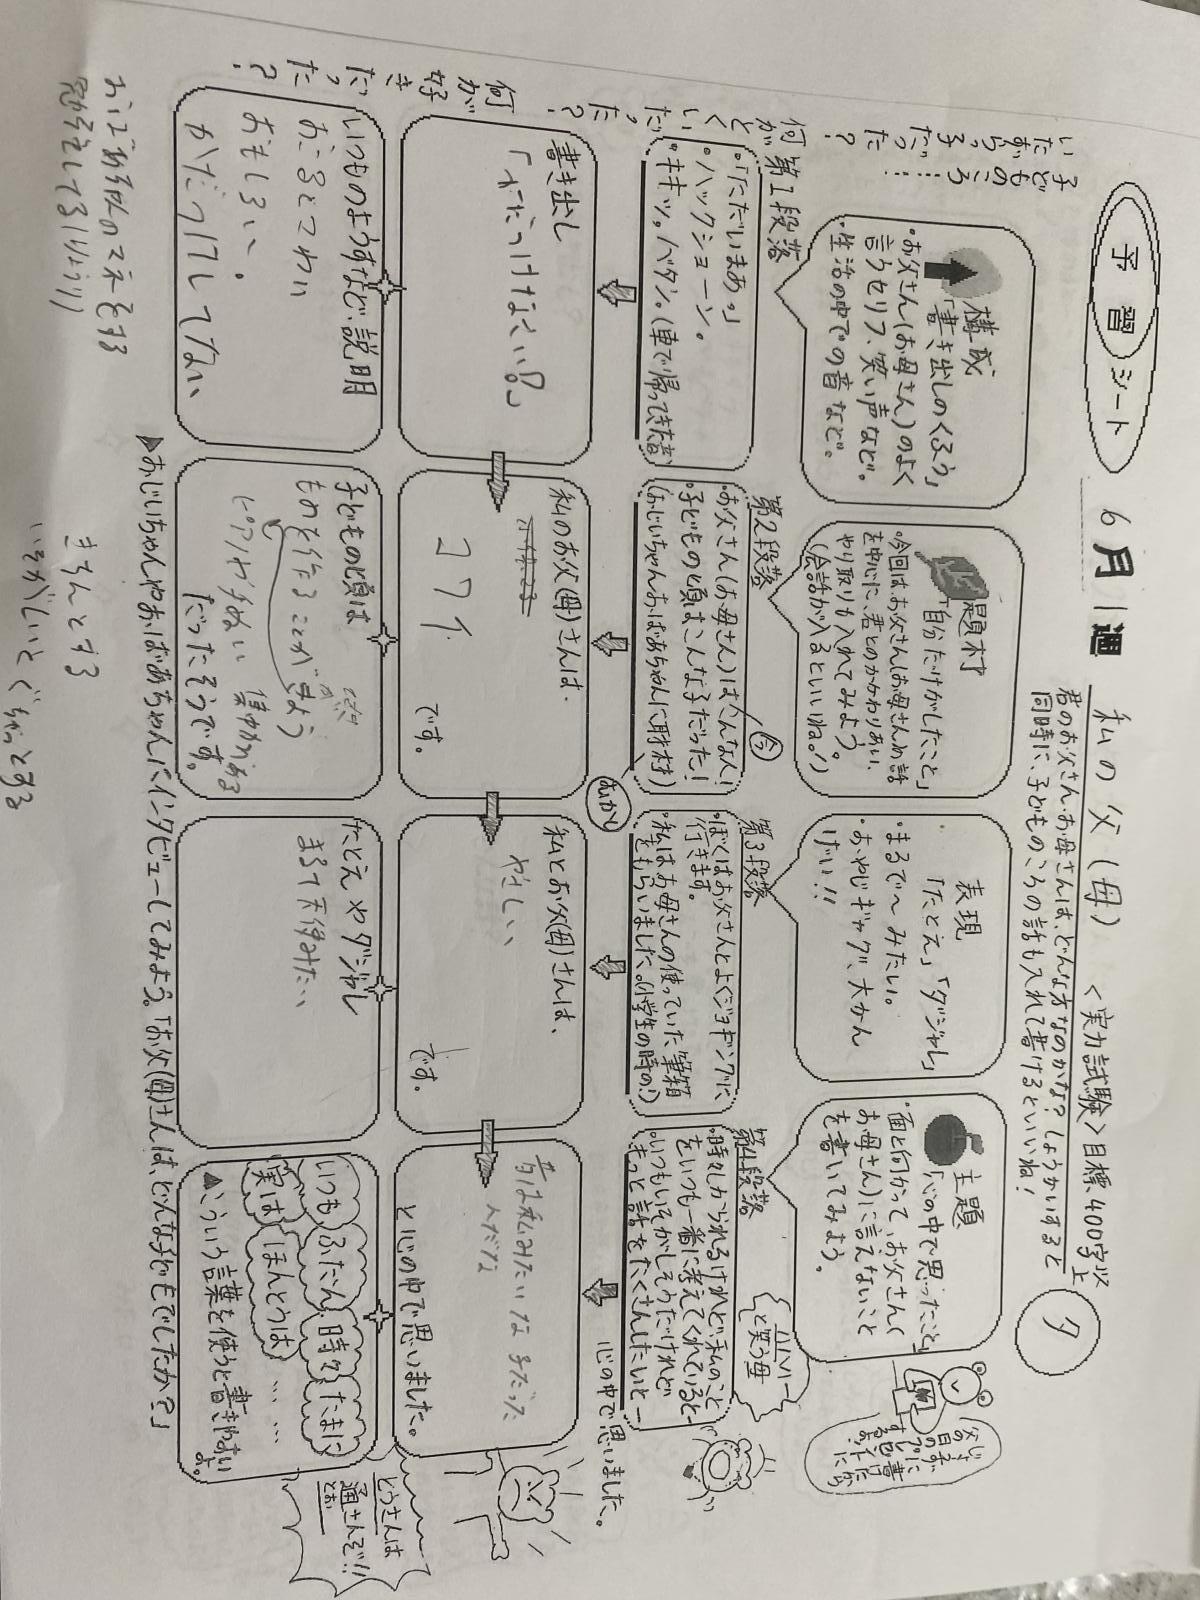 予習シート
6月1週
私の父(母)
<実力試験>目標400字以上
君のお父さん、お母さんは、どんな方なのかな?しょうかいすると
同時に、子どものころの話も入れて書けるといいね!
夕
構成
「書き出しのくふう」
・お父さん(お母さん)のよく
言うセリフ、笑い声など。
・生活の中での音など。
題材
「自分だけがしたこと」
・今回は、お父さん(お母さん)の話
を中心に、君とのかかわりあい、
やり取りも入れてみよう。
(会話が入るといいね。!)
表現
「たとえ」「ダジャレ」
・まるで〜みたい。
・おやじギャグ、大かん
げい!!
主題
「心の中で思ったこと」
・面と向かって、お父さん(
お母さん)に言えないこと
を書いてみよう。
子どものころ…
いたずらっ子
だった?
何が
とくい
だっ
た?
何が
好き
だっ
た?
第1段落
・「ただいまあ。」
・ハックショーン。
・キキッ。バタン。(車で帰ってきた音)
第2段落
・お父さん(お母さん)はこんな人!
・子どもの頃はこんな子だった!
(おじいちゃんおばあちゃんに取材)
今
むかし
第3段落
・ぼくはお父さんとよくジョギングに
行きます。
・私はお母さんの使っていた筆箱
をもらいました。(小学生の時の!)
第4段落
・時々しかられるけれど、私のこと
をいつも一番に考えてくれていると―
・いつもいそがしそうだけれど
きっと話をたくさんしたいと―
心の中で思いました。
ハハハー
と笑う母
書き出し
「かたづけなさい!?」
私のお父(母)さんは、
コワイ
です。
私とお父(母)さんは、
やさしい
です。
昔は私みたいな子だった
んだな
と心の中で思いました。
いつものようすなど、説明
おこるとこわい
おもしろい。
かたづけしてない
子どもの頃は
ものを作ることが
ピアノや
集中力がある
だったそうです。
たとえやダジャレ
まるで天使みたい
いつも ふだん 時々 たまに
実は ほんとうは … …
▲こういう言葉を使うと書きやすい
よ。
とうさんは
通さんぞ!!
▲おじいちゃんやおばあちゃんにインタビューしてみよう。「お父(母)さんは、どんな子どもでしたか?」
おばあちゃんのマネをする
きちんとする
いそがしいと